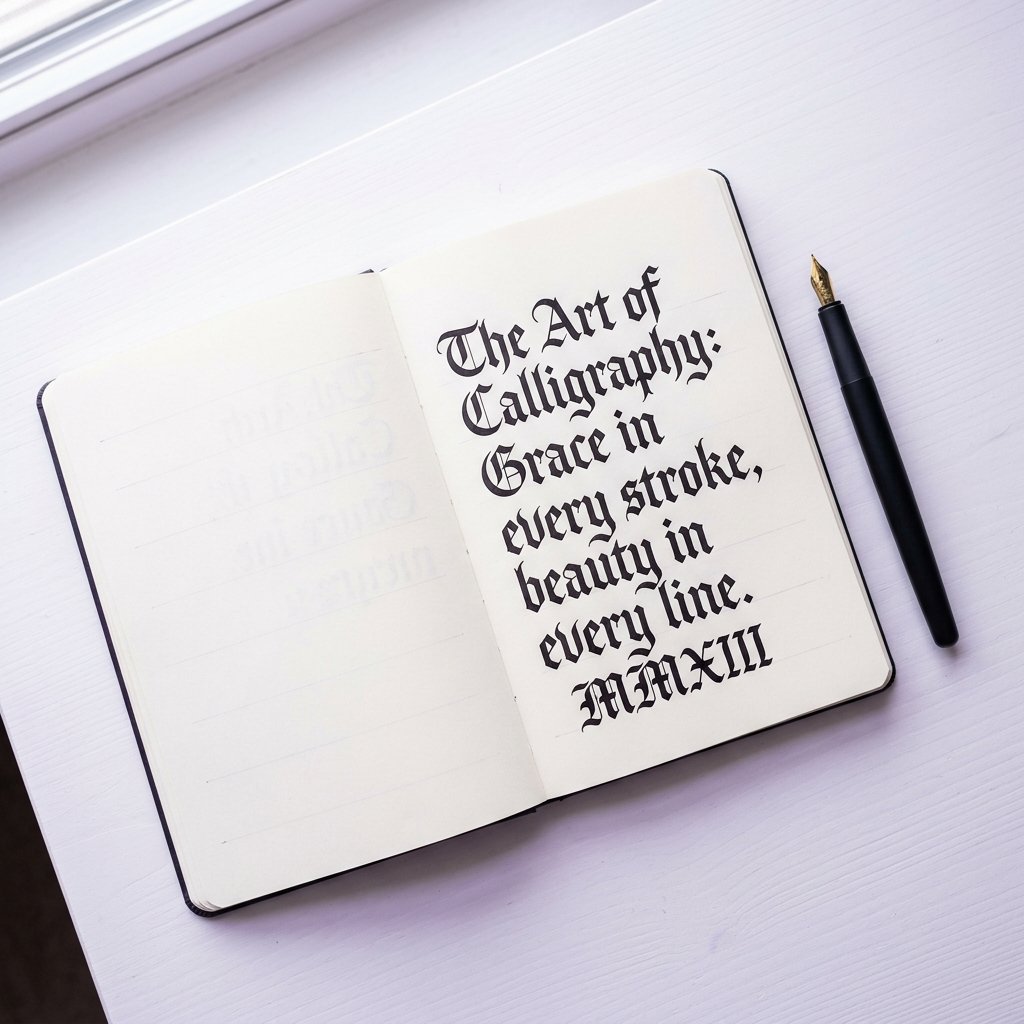 The Art of
Calligraphy:
Grace in
every stroke,
beauty in
every line.
MMXIII